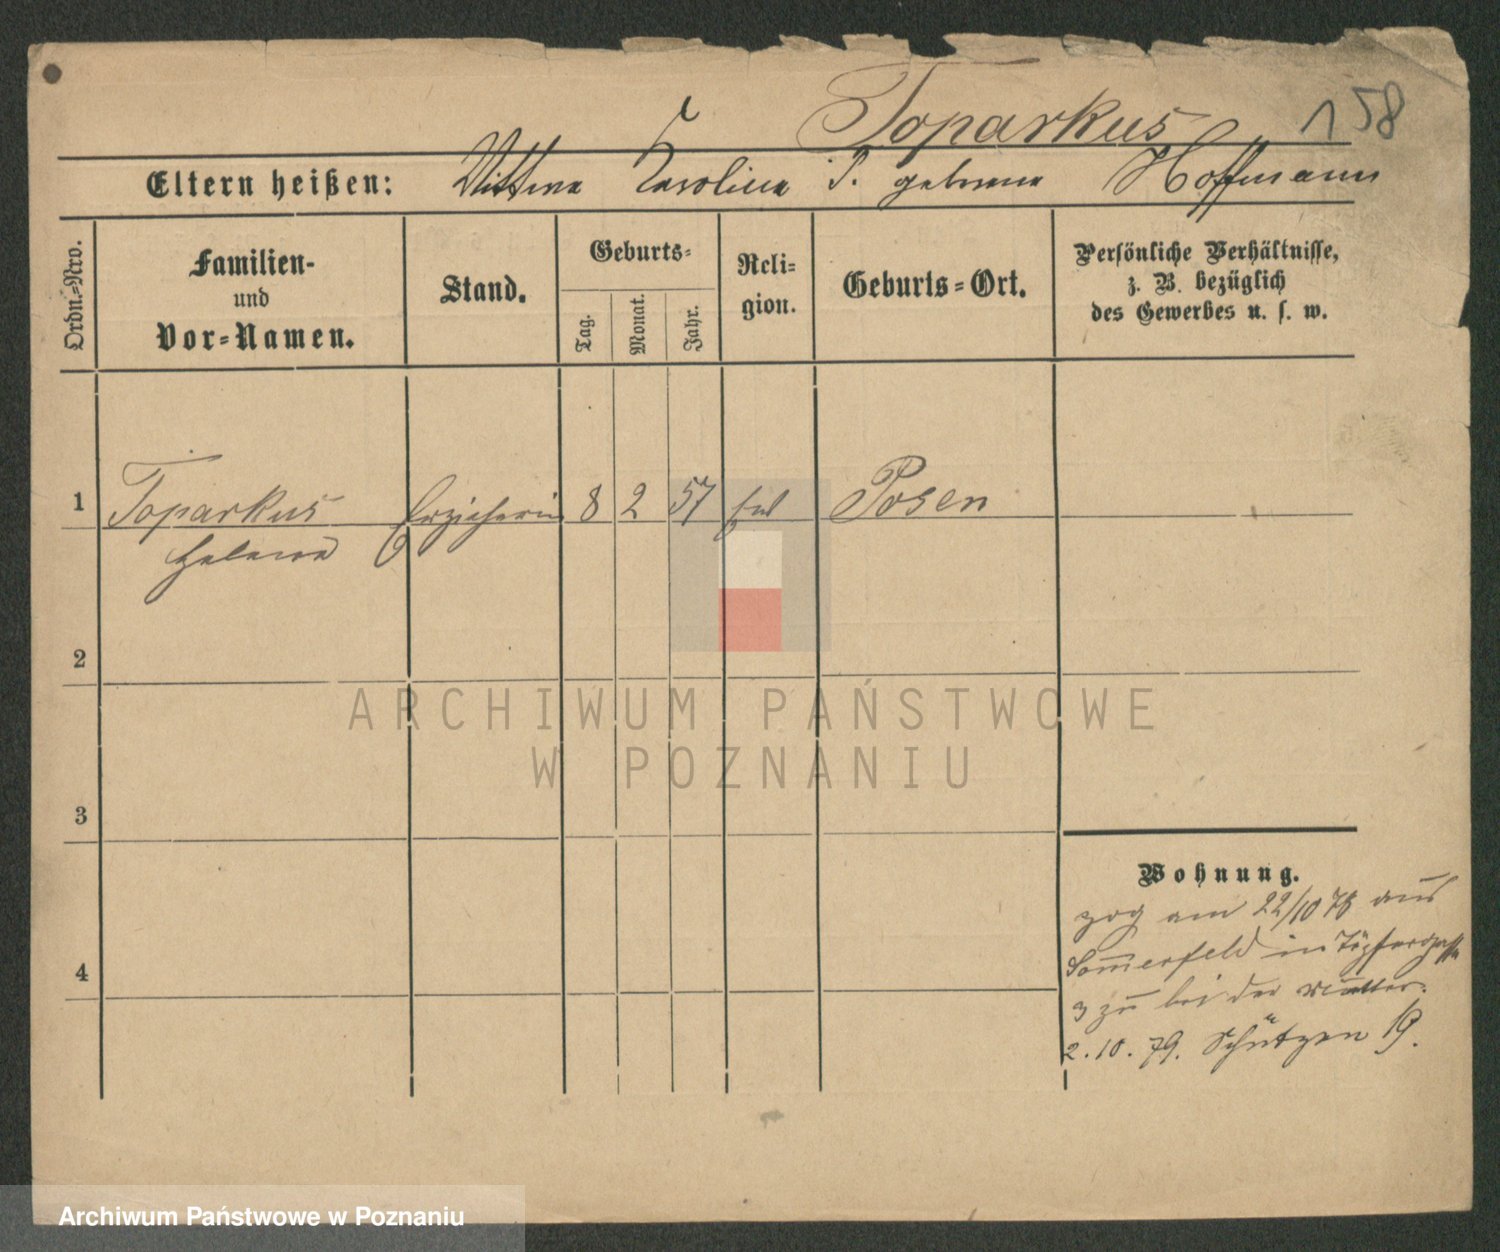 Toparkus 158
Eltern heißen: Wittwe Karoline T. geborene Hoffmann
Ordn.-Nro.
Familien-
und
Vor-Namen.
Stand.
Geburts-
Tag.
Monat.
Jahr.
Reli-
gion.
Geburts-Ort.
Persönliche Verhältnisse,
z. B. bezüglich
des Gewerbes u. s. w.
1 Toparkus Erzieherin 8 2 57 Posen
Helene
2
3
4
Wohnung.
zog am 22/10 78 aus
Som̅erfeld in Töpfergasse
3 zu bei der Mutter.
2.10.79. Schützen 19.
ARCHIWUM PAŃSTWOWE
W POZNANIU
Archiwum Państwowe w Poznaniu